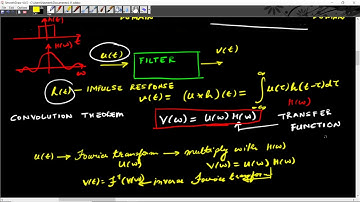 DOMAIN
DOMAIN
h(t)
H(ω)
u(t)
FILTER
v(t)
h(t) - IMPULSE RESPONSE
v(t) = (u * h)(t) = ∫ u(τ) h(t-τ) dτ
-∞
H(ω)
CONVOLUTION THEOREM
V(ω) = U(ω) H(ω)
TRANSFER
FUNCTION
u(t) → Fourier transform → multiply with H(ω)
U(ω)
V(ω) = U(ω) H(ω)
v(t) = f⁻¹(V(ω)) inverse Fourier transform